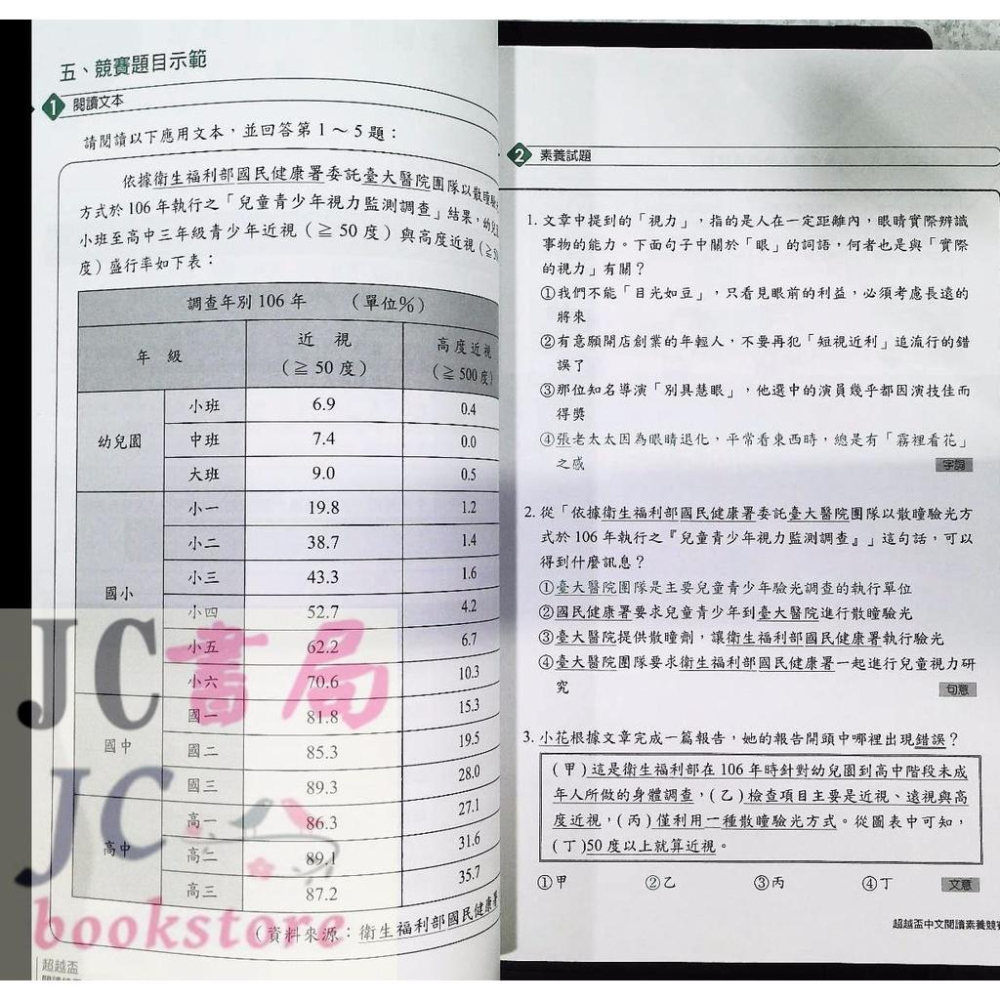 五、競賽題目示範
1 閱讀文本
請閱讀以下應用文本，並回答第1～5題：
依據衛生福利部國民健康署委託臺大醫院團隊以散瞳驗
方式於106年執行之「兒童青少年視力監測調查」結果，幼兒
小班至高中三年級青少年近視（≧50度）與高度近視（≧5
度）盛行率如下表：
調查年別106年　（單位%）
年級　近視（≧50度）　高度近視（≧500度）
幼兒園
小班　6.9　0.4
中班　7.4　0.0
大班　9.0　0.5
國小
小一　19.8　1.2
小二　38.7　1.4
小三　43.3　1.6
小四　52.7　4.2
小五　62.2　6.7
小六　70.6　10.3
國中
國一　81.8　15.3
國二　85.3　19.5
國三　89.3　28.0
高中
高一　86.3　27.1
高二　89.1　31.6
高三　87.2　35.7
（資料來源：衛生福利部國民健康署
超越盃
JC書局
JC
bookstore
2 素養試題
1. 文章中提到的「視力」，指的是人在一定距離內，眼睛實際辨識
事物的能力。下面句子中關於「眼」的詞語，何者也是與「實際
的視力」有關？
①我們不能「目光如豆」，只看見眼前的利益，必須考慮長遠的
將來
②有意願開店創業的年輕人，不要再犯「短視近利」追流行的錯
誤了
③那位知名導演「別具慧眼」，他選中的演員幾乎都因演技佳而
得獎
④張老太太因為眼睛退化，平常看東西時，總是有「霧裡看花」
之感
字詞
2. 從「依據衛生福利部國民健康署委託臺大醫院團隊以散瞳驗光方
式於106年執行之『兒童青少年視力監測調查』」這句話，可以
得到什麼訊息？
①臺大醫院團隊是主要兒童青少年驗光調查的執行單位
②國民健康署要求兒童青少年到臺大醫院進行散瞳驗光
③臺大醫院提供散瞳劑，讓衛生福利部國民健康署執行驗光
④臺大醫院團隊要求衛生福利部國民健康署一起進行兒童視力研
究
句意
3. 小花根據文章完成一篇報告，她的報告開頭中哪裡出現錯誤？
（甲）這是衛生福利部在106年時針對幼兒園到高中階段未成
年人所做的身體調查，（乙）檢查項目主要是近視、遠視與高
度近視，（丙）僅利用一種散瞳驗光方式。從圖表中可知，
（丁）50度以上就算近視。
①甲　②乙　③丙　④丁　文意
超越盃中文閱讀素養競賽